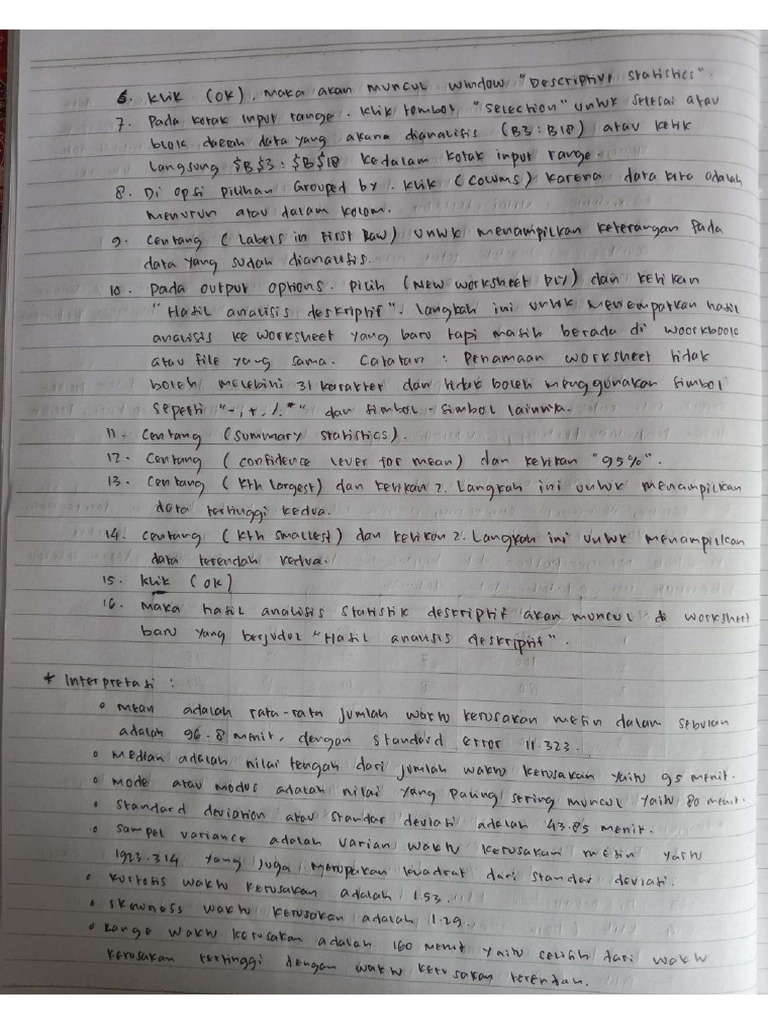 6. Klik (OK). Maka akan muncul window "Descriptive statistics".
7. Pada kotak input range. Klik tombol "selection" untuk selesai atau
blok daerah data yang akana dianalisis (B3:B18) atau ketik
langsung $B$3:$B$18 kedalam kotak input range.
8. Di opsi pilihan Grouped by. Klik (Colums) karena data kita adalah
menurun atau dalam kolom.
9. Centang (Labels in First Raw) untuk menampilkan keterangan pada
data yang sudah dianalisis.
10. Pada output options. pilih (New worksheet ply) dan ketikan
"Hasil analisis deskriptif". Langkah ini untuk menempatkan hasil
analisis ke worksheet yang baru tapi masih berada di woorkboolc
atau file yang sama. Catatan : Penamaan worksheet tidak
boleh melebihi 31 karakter dan tidak boleh menggunakan simbol
seperti "-,+,/.*" dan simbol-simbol lainnya.
11. Centang (Summary statistics).
12. Centang (confidence lever for mean) dan ketikan "95%".
13. Centang (kth largest) dan ketikan 2. Langkah ini untuk menampilkan
data tertinggi kedua.
14. Centang (kth smallest) dan ketikan 2. Langkah ini untuk menampilkan
data terendah kedua.
15. Klik (OK)
16. Maka hasil analisis statistik deskriptif akan muncul di worksheet
baru yang berjudul "Hasil analisis deskriptif".
* Interpretasi :
• Mean adalah rata-rata jumlah waktu kerusakan mesin dalam sebulan
adalah 96.8 menit, dengan standard error 11.323.
• Median adalah nilai tengah dari jumlah waktu kerusakan yaitu 95 menit.
• Mode atau modus adalah nilai yang paling sering muncul yaitu 80 menit.
• Standard deviation atau standar deviasi adalah 43.85 menit.
• Sampel variance adalah varian waktu kerusakan mesin yaitu
1923.314 yang juga merupakan kuadrat dari standar deviasi.
• Kurtosis waktu kerusakan adalah 1.53.
• Skewness waktu kerusakan adalah 1.29.
• Range waktu kerusakan adalah 160 menit yaitu selisih dari waktu
kerusakan tertinggi dengan waktu kerusakan terendah.